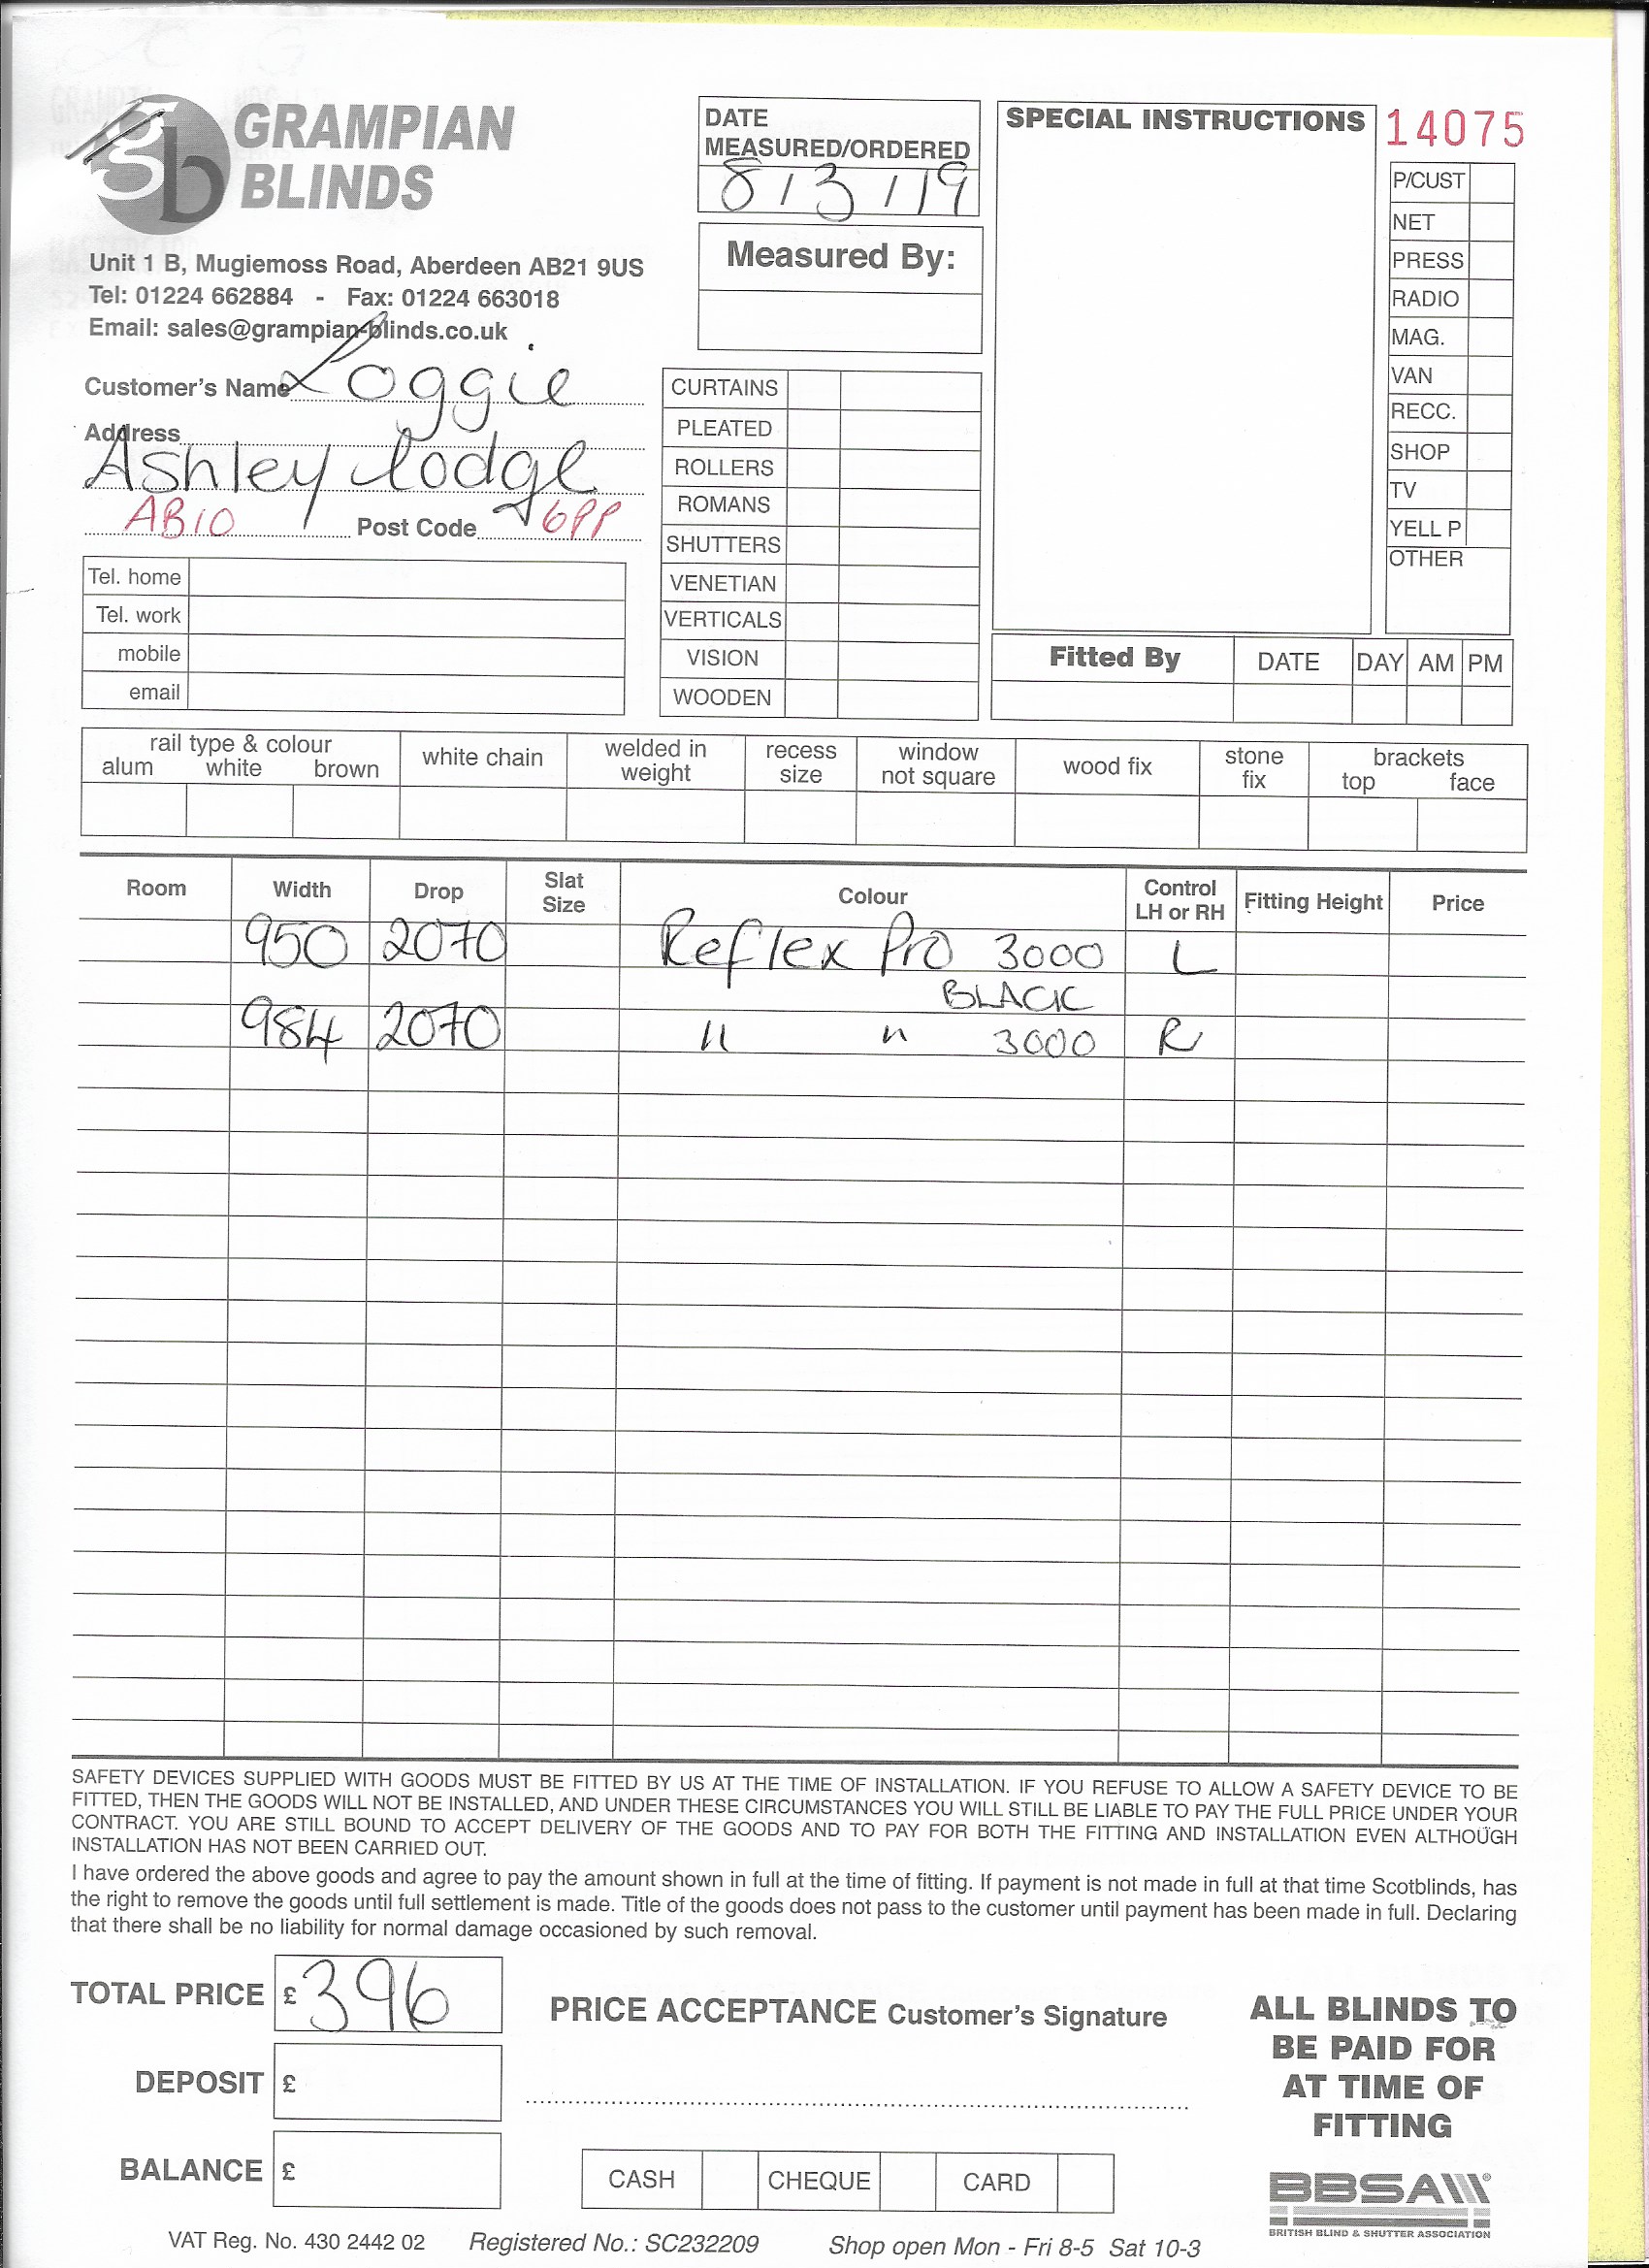 gb GRAMPIAN
BLINDS
Unit 1 B, Mugiemoss Road, Aberdeen AB21 9US
Tel: 01224 662884 - Fax: 01224 663018
Email: sales@grampian-blinds.co.uk
Customer's Name Loggie
Address
Ashley Lodge
AB10 Post Code 6PP
Tel. home
Tel. work
mobile
email
DATE
MEASURED/ORDERED
8/3/19
Measured By:
CURTAINS
PLEATED
ROLLERS
ROMANS
SHUTTERS
VENETIAN
VERTICALS
VISION
WOODEN
SPECIAL INSTRUCTIONS
14075
P/CUST
NET
PRESS
RADIO
MAG.
VAN
RECC.
SHOP
TV
YELL P
OTHER
Fitted By DATE DAY AM PM
rail type & colour
alum white brown
white chain
welded in
weight
recess
size
window
not square
wood fix
stone
fix
brackets
top face
Room Width Drop Slat Size Colour Control LH or RH Fitting Height Price
950 2070 Reflex Pro 3000 L
BLACK
984 2070 " " 3000 R
SAFETY DEVICES SUPPLIED WITH GOODS MUST BE FITTED BY US AT THE TIME OF INSTALLATION. IF YOU REFUSE TO ALLOW A SAFETY DEVICE TO BE
FITTED, THEN THE GOODS WILL NOT BE INSTALLED, AND UNDER THESE CIRCUMSTANCES YOU WILL STILL BE LIABLE TO PAY THE FULL PRICE UNDER YOUR
CONTRACT. YOU ARE STILL BOUND TO ACCEPT DELIVERY OF THE GOODS AND TO PAY FOR BOTH THE FITTING AND INSTALLATION EVEN ALTHOUGH
INSTALLATION HAS NOT BEEN CARRIED OUT.
I have ordered the above goods and agree to pay the amount shown in full at the time of fitting. If payment is not made in full at that time Scotblinds, has
the right to remove the goods until full settlement is made. Title of the goods does not pass to the customer until payment has been made in full. Declaring
that there shall be no liability for normal damage occasioned by such removal.
TOTAL PRICE £ 396
DEPOSIT £
BALANCE £
PRICE ACCEPTANCE Customer's Signature
CASH CHEQUE CARD
ALL BLINDS TO
BE PAID FOR
AT TIME OF
FITTING
BBSA ®
BRITISH BLIND & SHUTTER ASSOCIATION
VAT Reg. No. 430 2442 02 Registered No.: SC232209 Shop open Mon - Fri 8-5 Sat 10-3